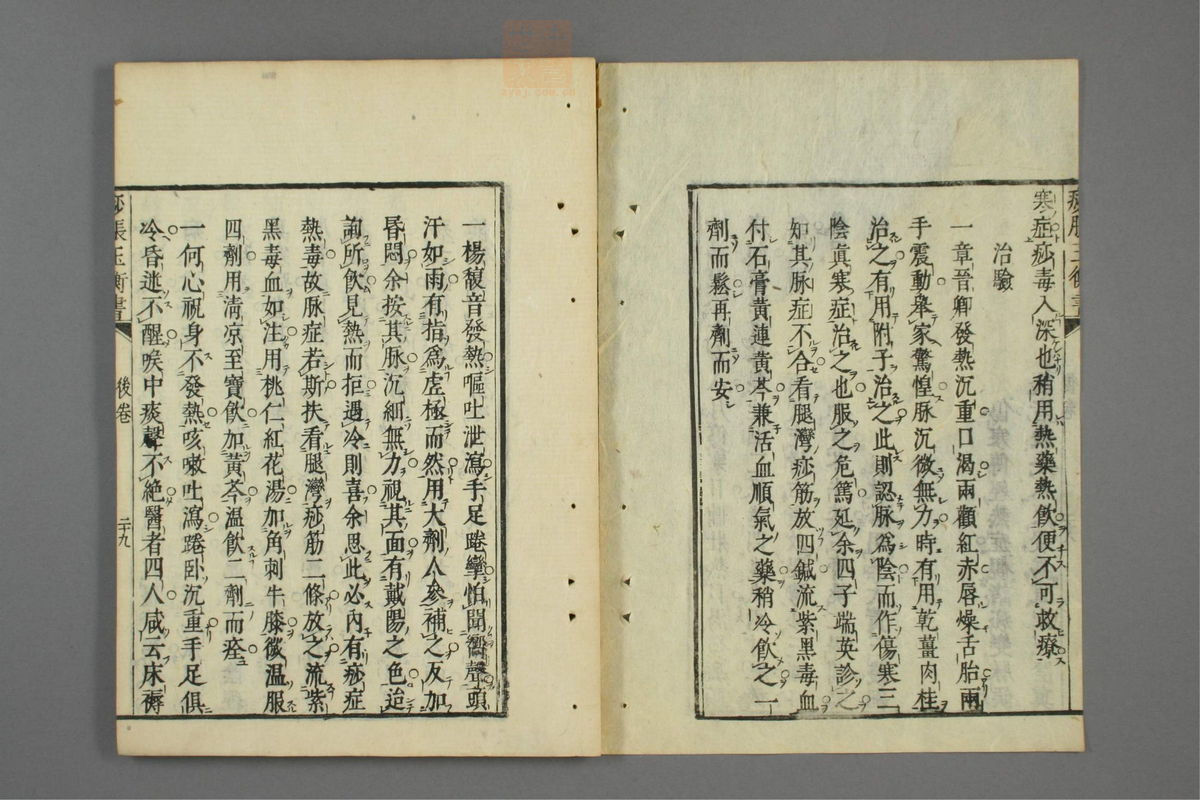 寒症痧毒入深也稍用熱藥熱飲便不可救療
治驗
一章晉卿發熱沉重口渴兩顴紅赤唇燥舌胎兩
手震動舉家驚惶脉沉微無力時有用乾薑肉桂
治之有用附子治之此則認脉為陰而作傷寒三
陰眞寒症治之也服之危篤延余四子端英診之
知其脉症不合看腿灣痧筋放四鍼流紫黑毒血
付石膏黃連黃芩兼活血順氣之藥稍冷飲之一
劑而鬆再劑而安
一楊馥音發熱嘔吐泄瀉手足踡攣怕聞響聲頭
汗如雨有指爲虛極而然用大劑人參補之反加
昏悶余按其脉沉細無力視其面有戴陽之色迨
詢所飲見熱而拒遇冷則喜余思此必內有痧症
熱毒故脉症若斯扶看腿灣痧筋二條放之流紫
黑毒血如注用桃仁紅花湯加角刺牛膝微温服
四劑用淸凉至寶飲加黃芩温飲二劑而痊
一何心視身不發熱咳嗽吐瀉踡卧沉重手足俱
冷昏迷不醒喉中痰聲不絕醫者四人咸云床褥
痧脹玉衡書
後卷
二十九